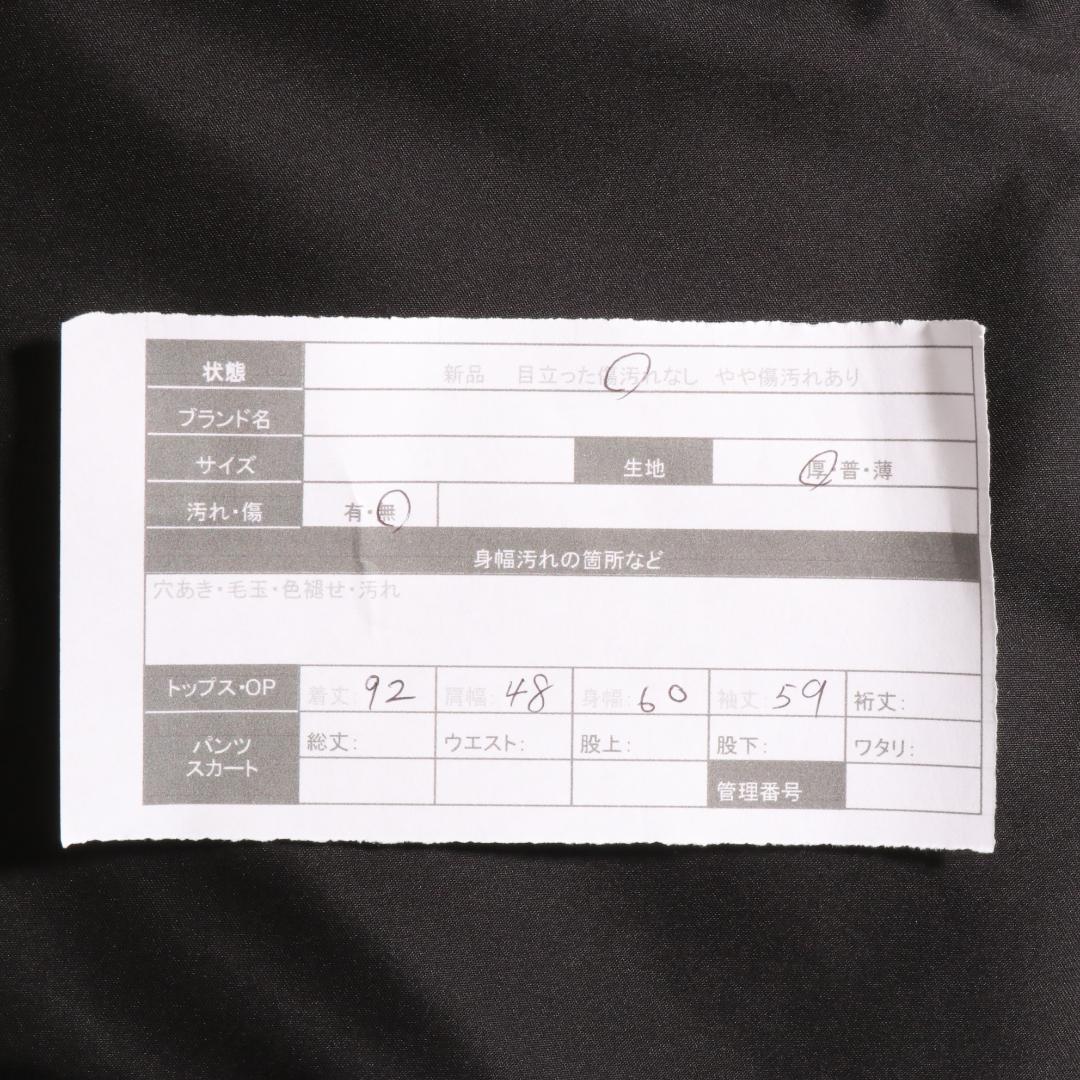 状態 新品 目立った傷汚れなし やや傷汚れあり
ブランド名
サイズ 生地 厚・普・薄
汚れ・傷 有・無
身幅汚れの箇所など
穴あき・毛玉・色褪せ・汚れ
トップス・OP 着丈:92 肩幅:48 身幅:60 袖丈:59 裄丈:
パンツ 総丈: ウエスト: 股上: 股下: ワタリ:
スカート
管理番号